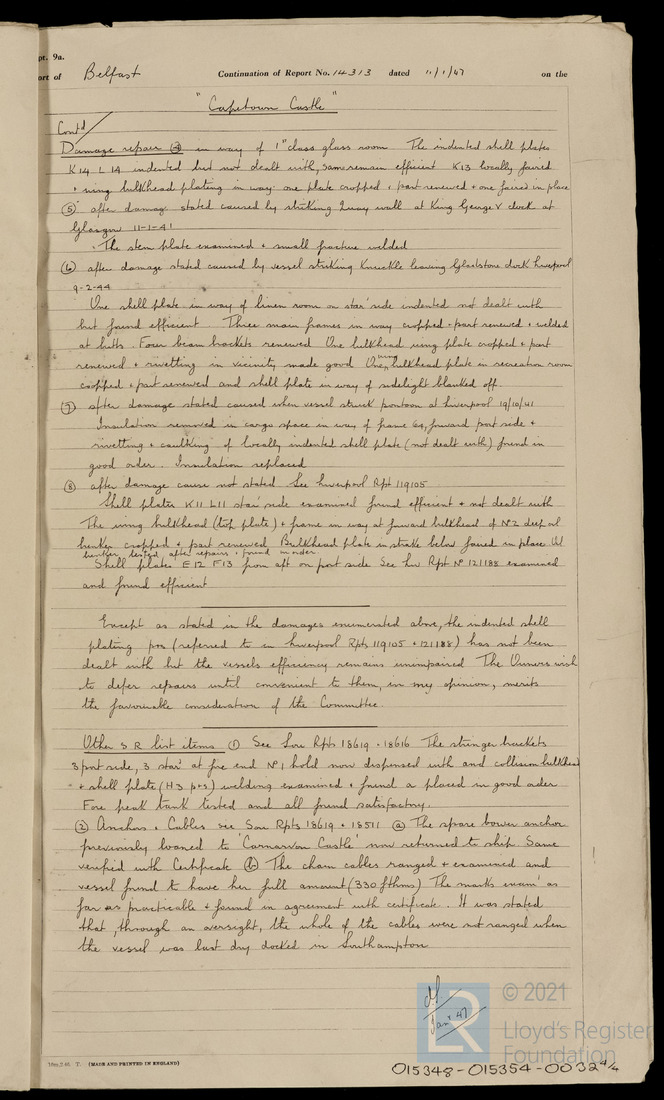 pt. 9a.
ort of Belfast Continuation of Report No. 14313 dated 11/1/47 on the
"Capetown Castle"
Contd
Damage repair (4) in way of 1st class glass room The indented shell plates
K14 L14 indented but not dealt with, same remain efficient K13 locally faired
+ wing bulkhead plating in way one plate cropped + part renewed + one faired in place
(5) after damage stated caused by striking Quay wall at King George V dock at
Glasgow 11-1-41
The stem plate examined + small fracture welded
(6) after damage stated caused by vessel striking Knuckle leaving Gladstone dock Liverpool
9-2-44
One shell plate in way of linen room on star' side indented not dealt with
but found efficient Three main frames in way cropped + part renewed + welded
at butts. Four beam brackets renewed One bulkhead wing plate cropped + part
renewed + rivetting in vicinity made good One wing bulkhead plate in recreation room
cropped + part renewed and shell plate in way of sidelight blanked off
(7) after damage stated caused when vessel struck pontoon at Liverpool 19/10/41
Insulation removed in cargo space in way of frame 69, forward port side +
rivetting + caulking of locally indented shell plate (not dealt with) found in
good order. Insulation replaced
(8) after damage cause not stated See Liverpool Rpt 119105
Shell plates K11 L11 star' side examined found efficient + not dealt with
The wing bulkhead (top plate) + frame in way at forward bulkhead of No 2 deep oil
bunker cropped + part renewed Bulkhead plate in strake below faired in place Oil
bunker tested after repairs + found in order.
Shell plates E12 F13 from aft on port side See Liv Rpt No 121188 examined
and found efficient
Except as stated in the damages enumerated above, the indented shell
plating p&s (referred to in Liverpool Rpts 119105 + 121188) has not been
dealt with but the vessels efficiency remains unimpaired The Owners wish
to defer repairs until convenient to them, in my opinion, merits
the favourable consideration of the Committee
Other S R list items (1) See Sou Rpts 18619 + 18616 The stringer brackets
3 port side, 3 star' at fore end No 1 hold now dispensed with and collision bulkhead
+ shell plate (H3 p+s) welding examined + found or placed in good order
Fore peak tank tested and all found satisfactory.
(2) Anchors + Cables see Sou Rpts 18619 + 18511 (a) The spare bower anchor
previously loaned to 'Carnarvon Castle' now returned to ship Same
verified with Certificate (b) The chain cables ranged + examined and
vessel found to have her full amount (330 fthms) The marks exam' as
far as practicable + found in agreement with certificate. It was stated
that, through an oversight, the whole of the cables were not ranged when
the vessel was last dry docked in Southampton
Jan 47
© 2021
LR
Lloyd's Register
Foundation
(MADE AND PRINTED IN ENGLAND)
015348-015354-0032 4/4